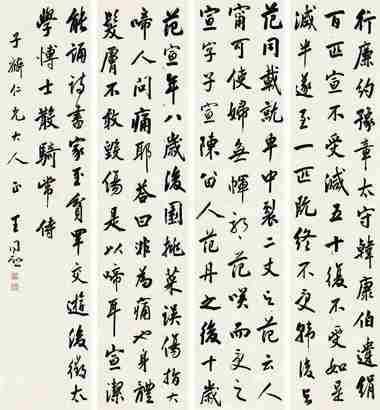 行廉約豫章太守韓康伯遺絹
百匹宣不受減五十復不受如是
減半遂至一匹既終不受韓後與
范同載就車中裂二丈與范云人
甯可使婦無惲邪范笑而受之
宣字子宣陳留人范丹之後十歲
范宣年八歲後園挑菜誤傷指大
啼人問痛耶答曰非為痛也身體
髮膚不敢毀傷是以啼耳宣潔
能誦詩書家至貧罕交遊後徵太
學博士散騎常侍
子 仁兄大人正 王同愈